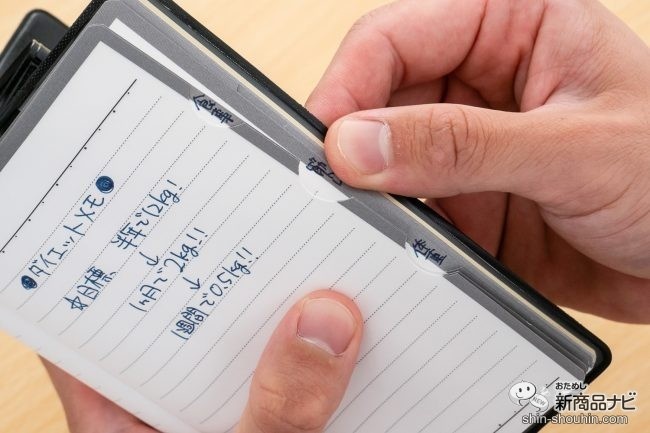 ダイエットメモ
☆目標 半年で12kg!
↓
1ヶ月で2kg!!
↓
1週間で0.5kg!!
食事
体重
おためし
新商品ナビ
shin-shouhin.com
NEW